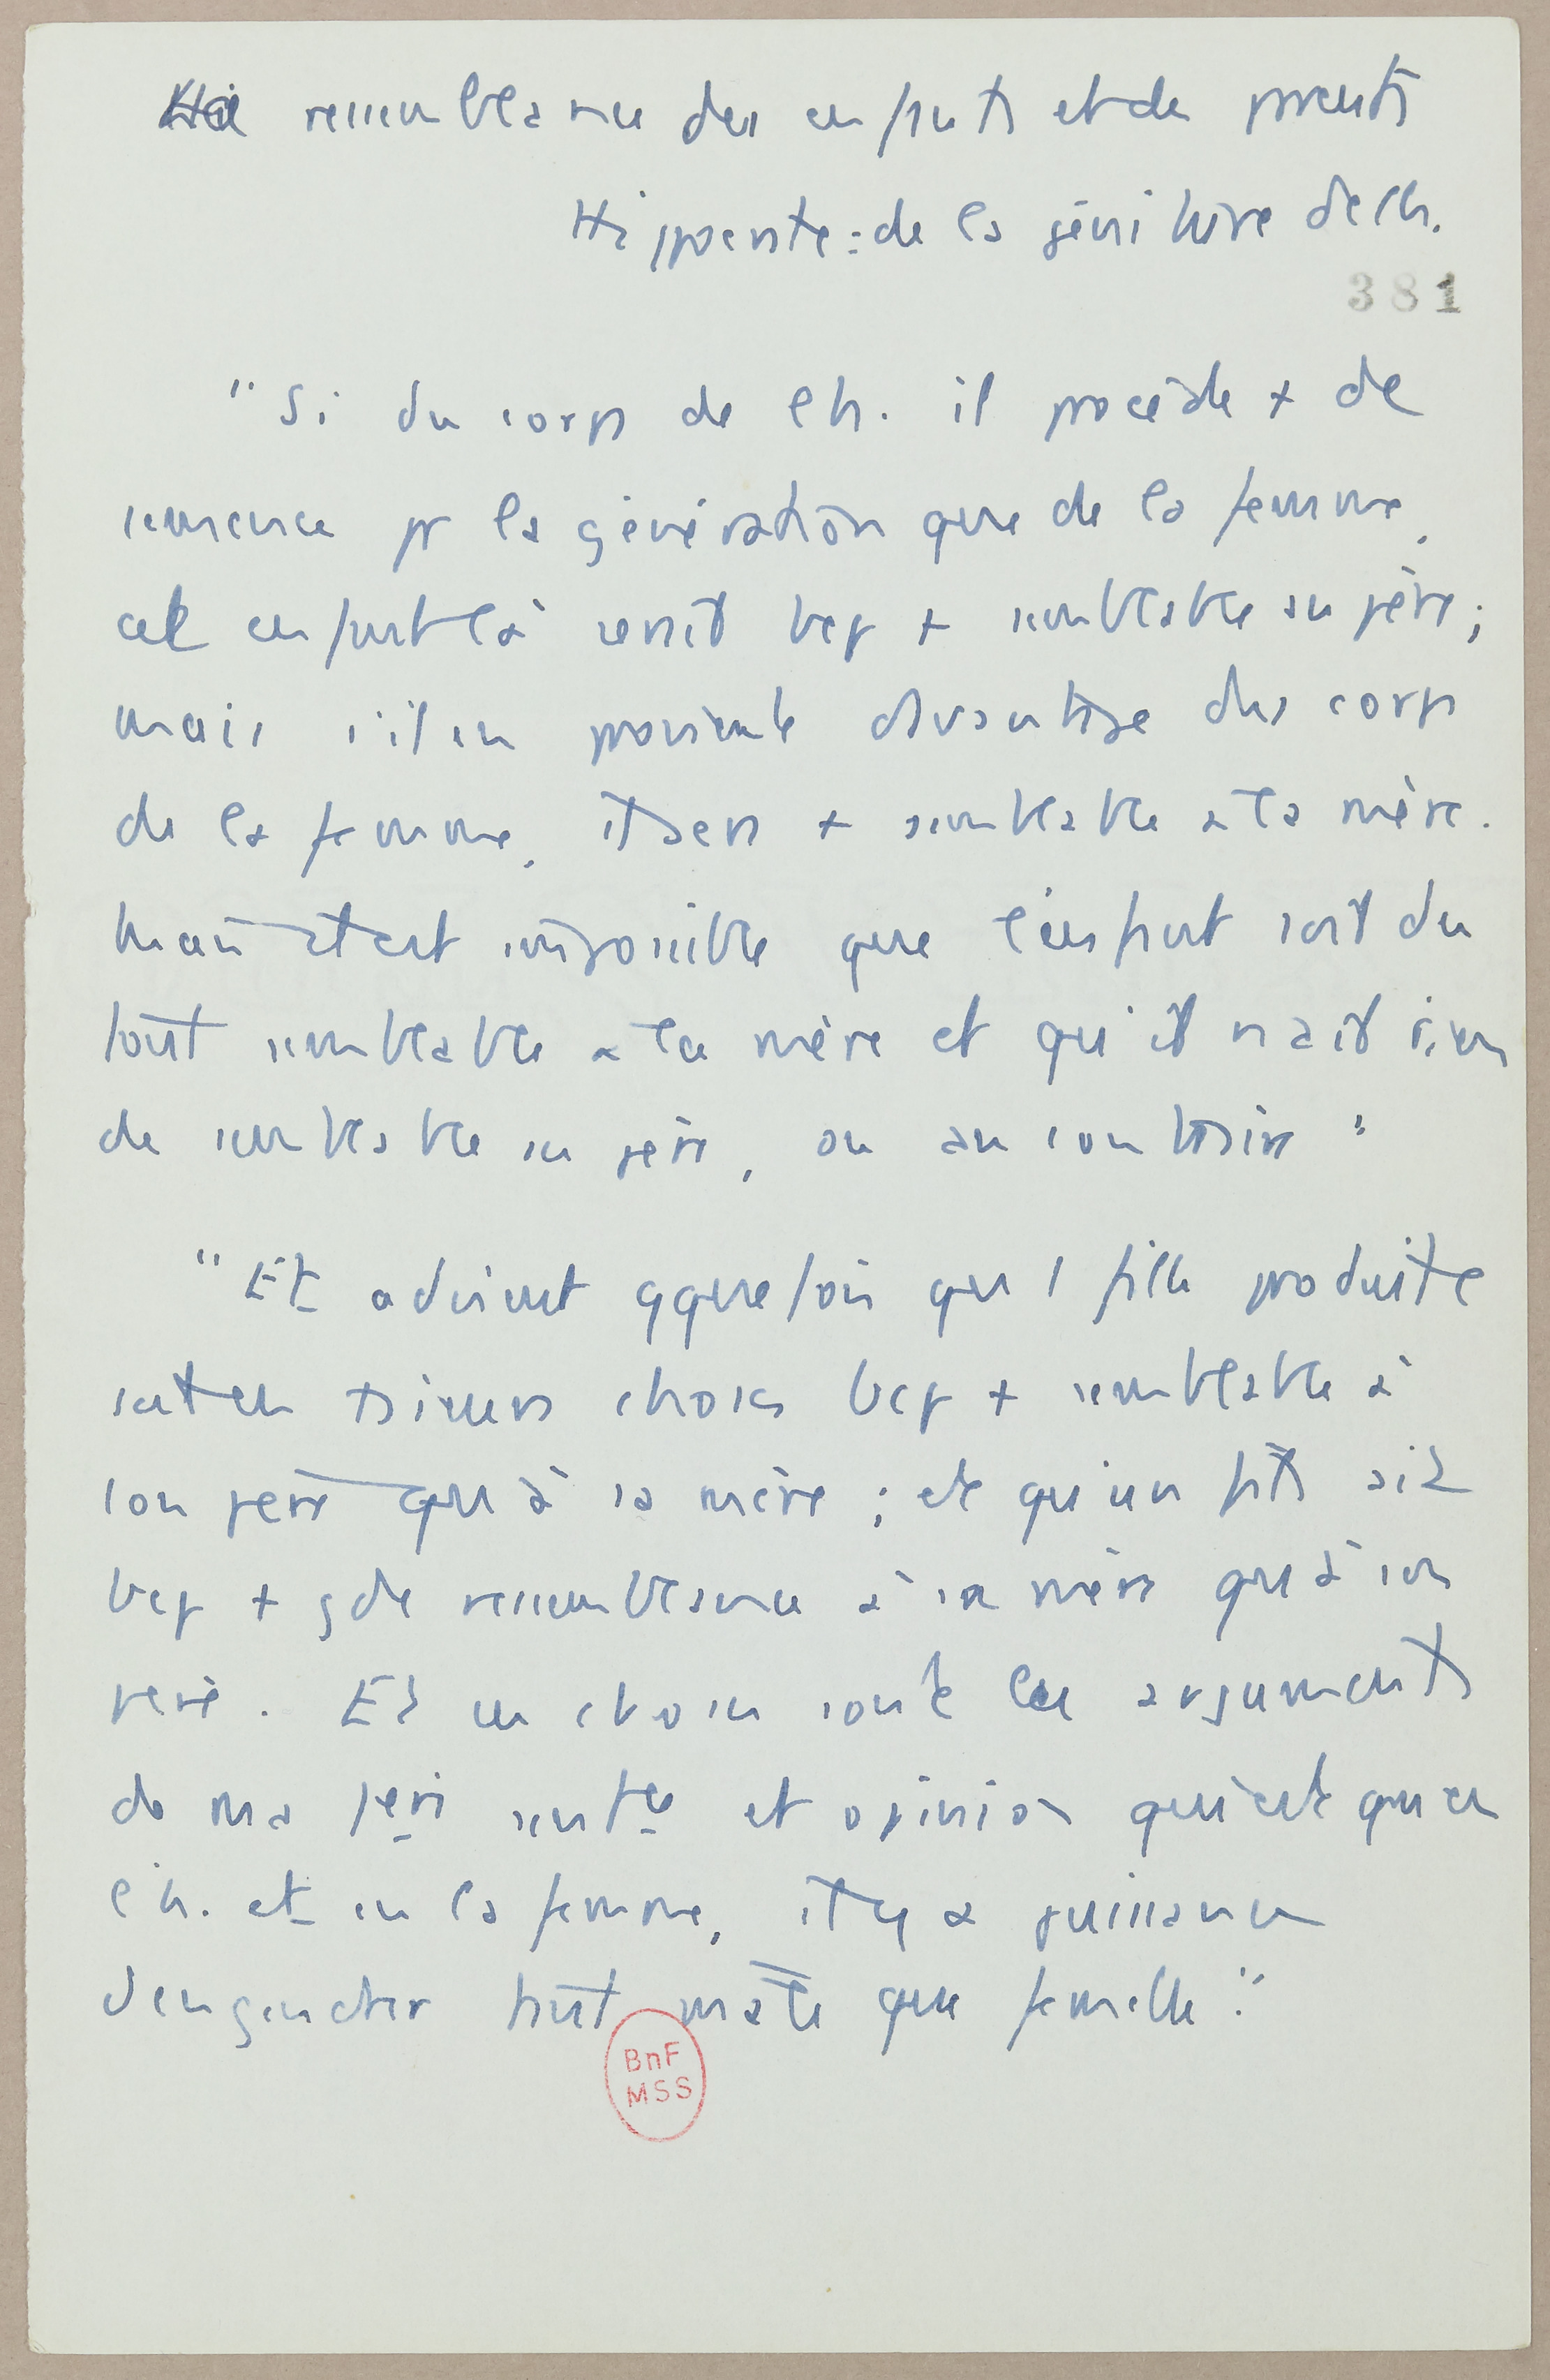 La ressemblance des enfants et des parents
Hippocrate : de la géniture de l'h.
381
"Si du corps de l'h. il procède + de
semence pr la génération que de la femme,
cet enfant là serait bcp + semblable au père ;
mais s'il en provient davantage du corps
de la femme, il sera + semblable à la mère.
Mais il est impossible que l'enfant soit du
tout semblable à la mère et qu'il n'ait rien
de semblable au père, ou au contraire"
"Et advient qquefois que 1 fille produite
en choses bcp + semblable à
son père qu'à sa mère ; et qu'un fils ait
bcp + gde ressemblance à sa mère qu'à son
père. Et ces choses sont les arguments
de ma et opinion qui est que en
l'h. et en la femme, il y a puissance
d'engendrer tant mâle que femelle."
BnF
MSS